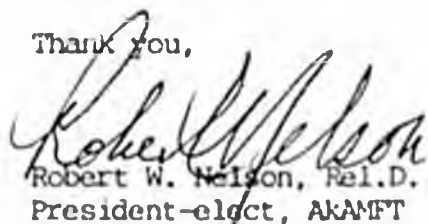 Thank you,
Robert W. Nelson
Robert W. Nelson, Rel.D.
President-elect, AKAMFT